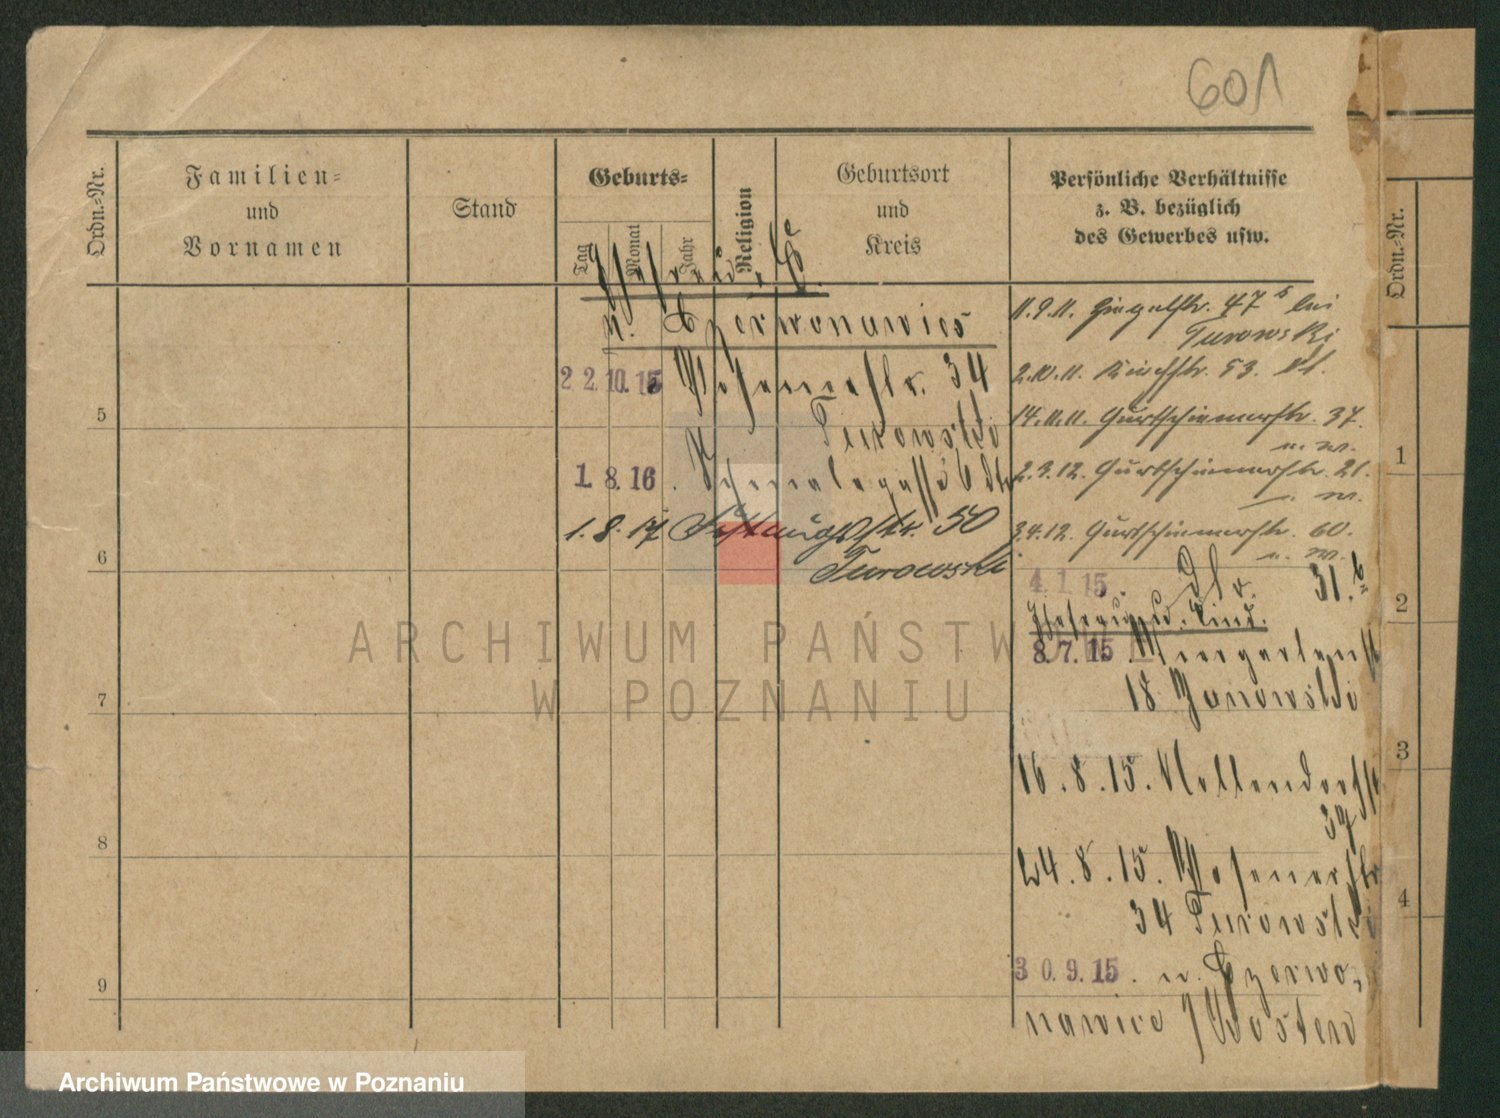 601
Ordn.=Nr.
Familien=
und
Vornamen
Stand
Geburts=
Tag
Monat
Jahr
Religion
Geburtsort
und
Kreis
Persönliche Verhältnisse
z. B. bezüglich
des Gewerbes usw.
Ordn.=Nr.
n. Czerwonawies
22.10.15 Posenerstr. 34
Turowski
1.8.16
1.8.17 50
Turowski
11.9.11. 47 bei
Turowski
2.10.11. Kirchstr. 53.
14.11.11. Gurtschinerstr. 37.
u. W.
2.3.12. Gurtschinerstr. 21.
u. W.
3.4.12. Gurtschinerstr. 60.
u. W.
4.1.15. 31.b
Ehefrau u. Kind.
8.7.15
18 Janowski
16.8.15. Nollendorfstr
39
24.8.15. Posenerstr
34 Turowski
30.9.15. n. Czerwo=
nawies / Kosten
5
6
7
8
9
1
2
3
4
ARCHIWUM PAŃSTWOWE
W POZNANIU
Archiwum Państwowe w Poznaniu